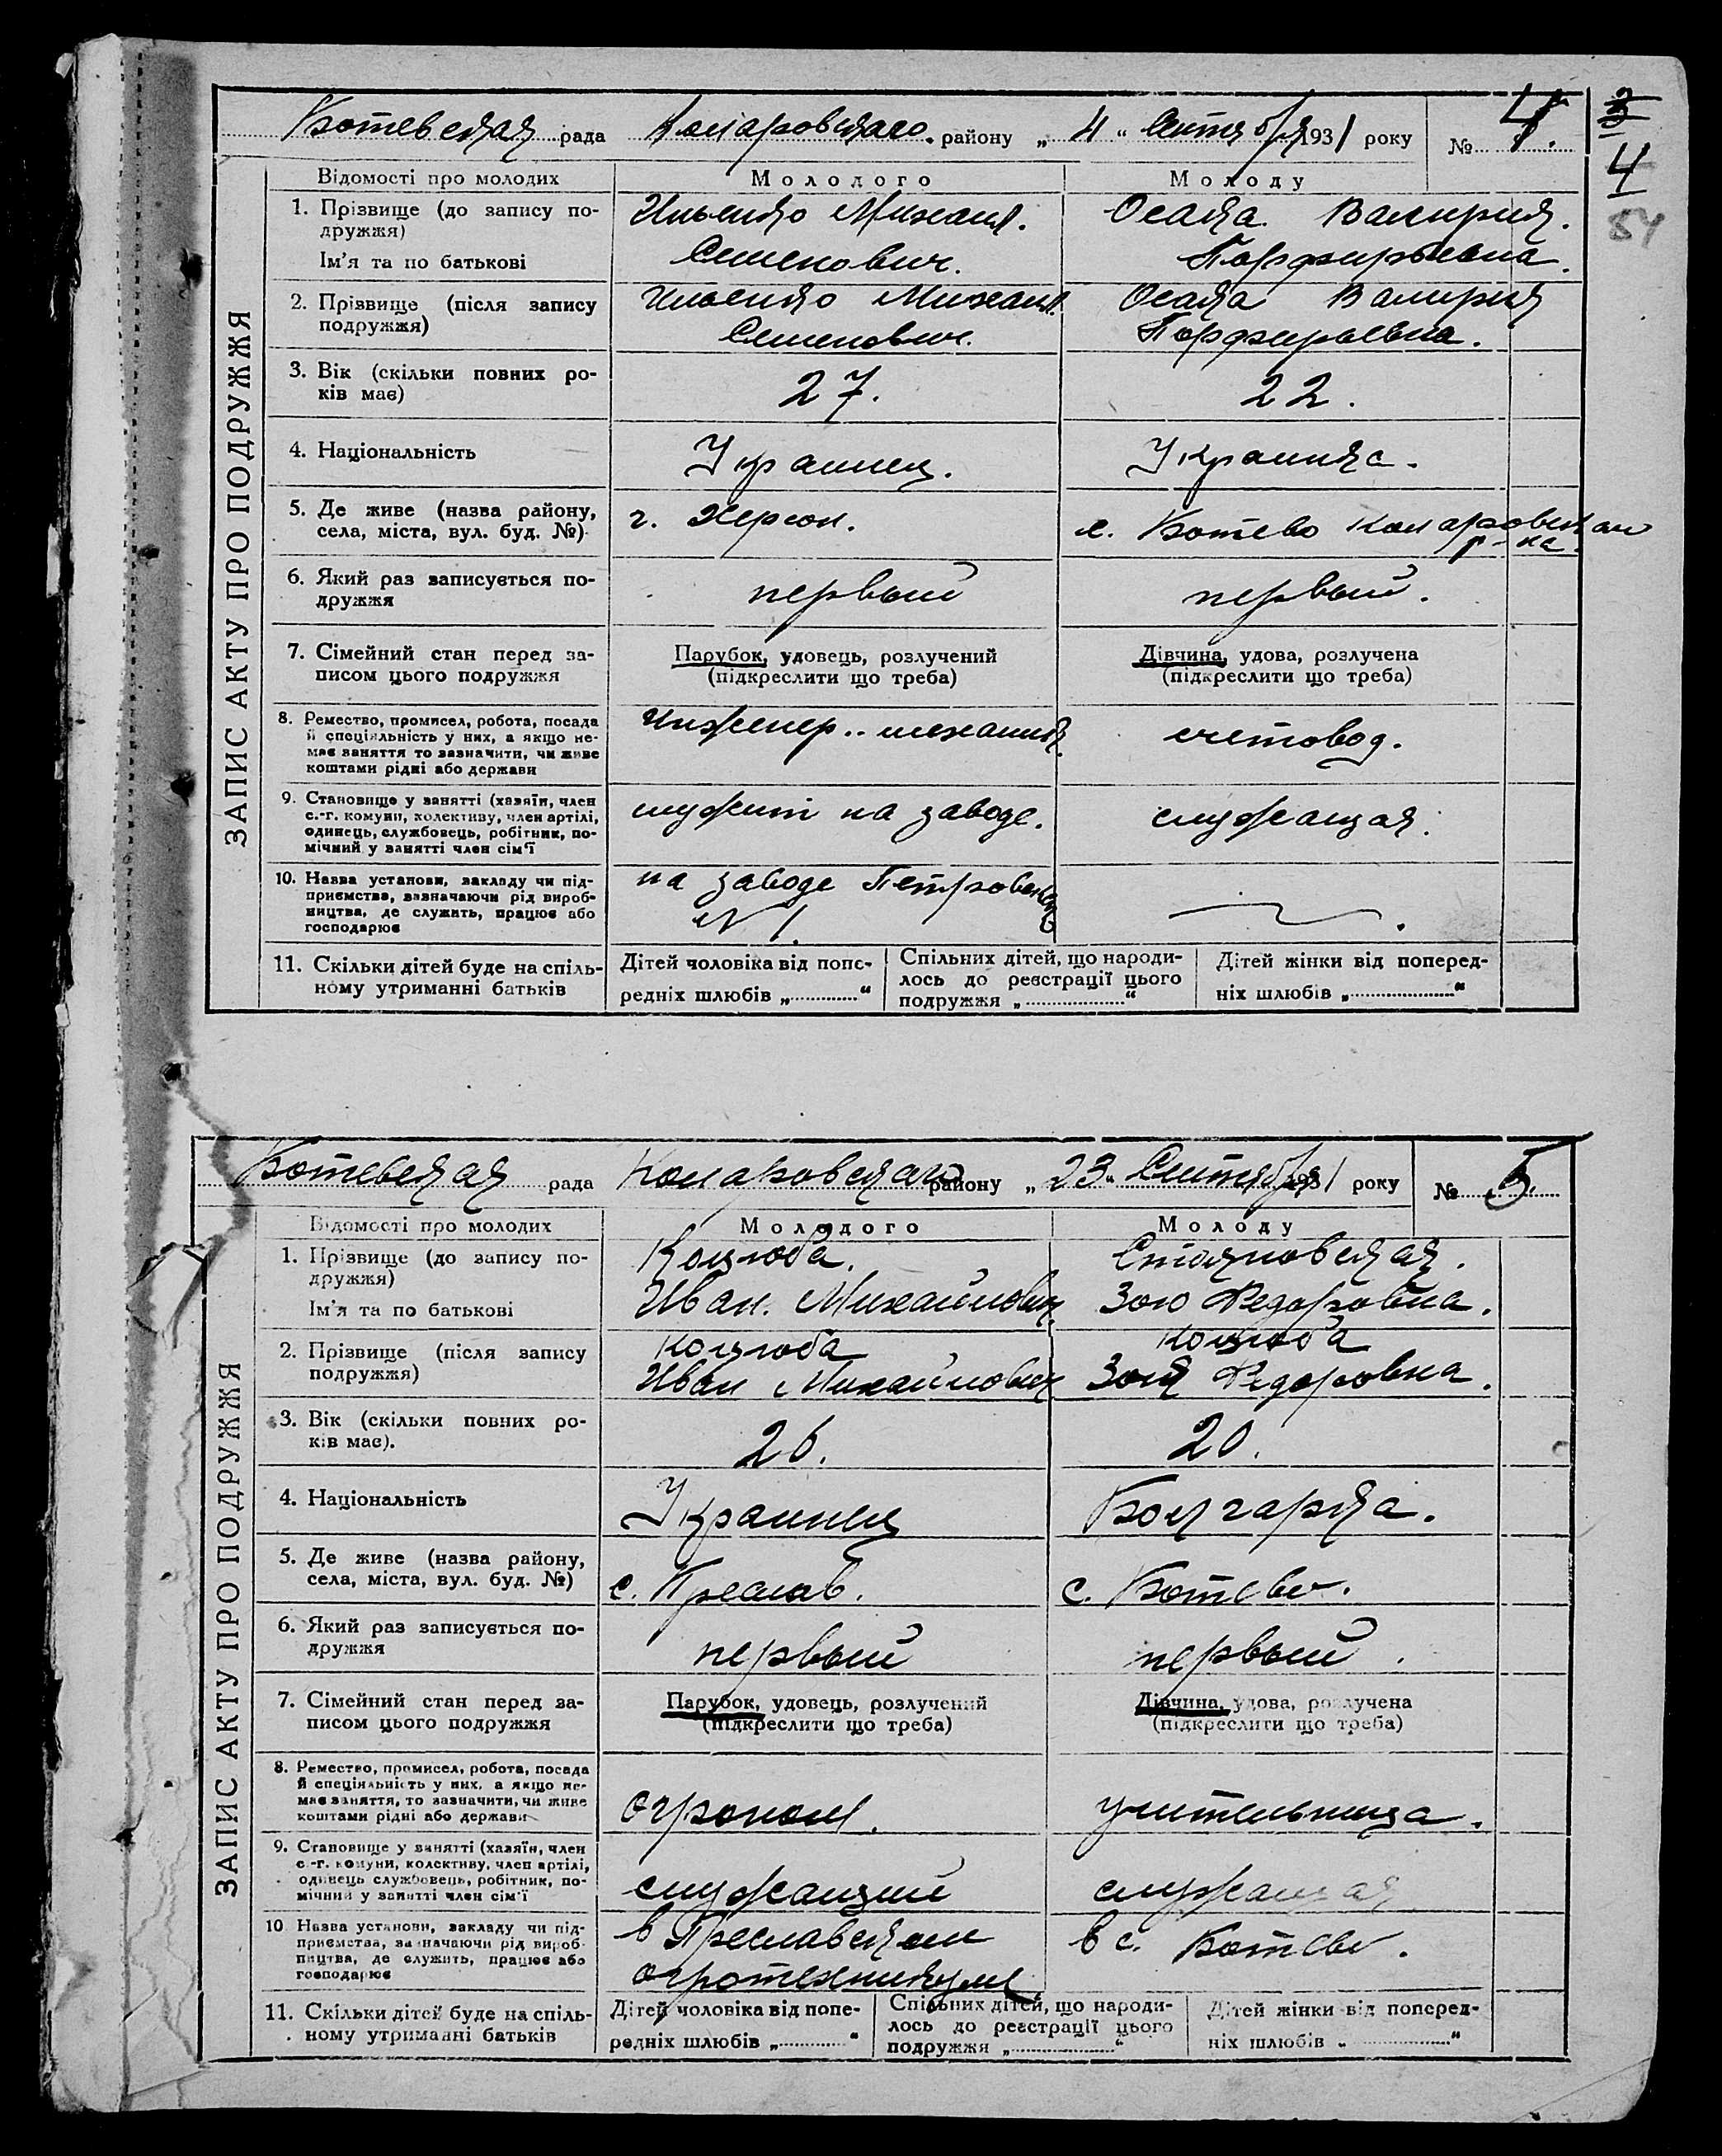 Ботевская рада Коларовского району „ 4 “ Сентября 1931 року № 4.
3
4
54
ЗАПИС АКТУ ПРО ПОДРУЖЖЯ
Відомості про молодих Молодого Молоду
1. Прізвище (до запису по- Ильенко Михаил. Осадча Валирия.
дружжя)
Ім'я та по батькові Семенович. Порфирьевна.
2. Прізвище (після запису Ильенко Михаил. Осадча Валирия
подружжя) Семенович. Порфирьевна.
3. Вік (скільки повних ро- 27. 22.
ків має)
4. Національність Украинец. Украинка.
5. Де живе (назва району, г. Херсон. с. Ботево Коларовского
села, міста, вул. буд. №) р-на.
6. Який раз записується по- первый первый.
дружжя
7. Сімейний стан перед за- Парубок, удовець, розлучений Дівчина, удова, розлучена
писом цього подружжя (підкреслити що треба) (підкреслити що треба)
8. Ремество, промисел, робота, посада Инженер-механик. счетовод.
й спеціяльність у них, а якщо не-
має заняття то зазначити, чи живе
коштами рідні або держави
9. Становище у занятті (хазяїн, член служит на заводе. служащая.
с.-г. комуни, колективу, член артілі,
одинець, службовець, робітник, по-
мічний у занятті член сім'ї
10. Назва установи, закладу чи під- на заводе Петровского
приємства, зазначаючи рід вироб- № 1.
ництва, де служить, працює або
господарює
11. Скільки дітей буде на спіль- Дітей чоловіка від попе- Спільних дітей, що народи- Дітей жінки від поперед-
ному утриманні батьків редніх шлюбів „............“ лось до реєстрації цього ніх шлюбів „............“
подружжя „............“
Ботевская рада Коларовского району „ 23 “ Сентября 1931 року № 5.
ЗАПИС АКТУ ПРО ПОДРУЖЖЯ
Відомості про молодих Молодого Молоду
1. Прізвище (до запису по- Коцюба. Стояновская.
дружжя)
Ім'я та по батькові Иван. Михайлович. Зою Федоровна.
2. Прізвище (після запису Коцюба Коцюба
подружжя) Иван Михайлович Зоя Федоровна.
3. Вік (скільки повних ро- 26. 20.
ків має).
4. Національність Украинец Болгарка.
5. Де живе (назва району, с. Преслав. с. Ботево.
села, міста, вул. буд. №)
6. Який раз записується по- первый первый.
дружжя
7. Сімейний стан перед за- Парубок, удовець, розлучений Дівчина, удова, розлучена
писом цього подружжя (підкреслити що треба) (підкреслити що треба)
8. Ремество, промисел, робота, посада огроном. учительница.
й спеціяльність у них, а якщо не-
має заняття, то зазначити, чи живе
коштами рідні або держави
9. Становище у занятті (хазяїн, член служащий служащая
с.-г. комуни, колективу, член артілі,
одинець службовець, робітник, по-
мічний у занятті член сім'ї
10 Назва установи, закладу чи під- в Преславском в с. Ботево.
приємства, зазначаючи рід вироб- огротехникуме
ництва, де служить, працює або
господарює
11. Скільки дітей буде на спіль- Дітей чоловіка від попе- Спільних дітей, що народи- Дітей жінки від поперед-
ному утриманні батьків редніх шлюбів „............“ лось до реєстрації цього ніх шлюбів „............“
подружжя „............“